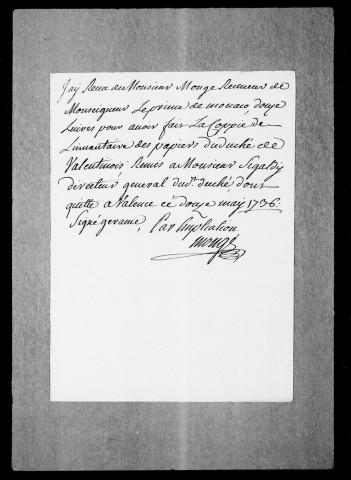 Jay Receu de Monsieur Monge Receveur de
Monseigneur Le prince de monaco, douze
Livres pour avoir fait La Coppie de
Linventaire des papiers du duché de
Valentinois Remis a Monsieur Sigaldy
directeur general dud. duché, dont
quitte a Valence cé douze may 1736.
Signé gerame, Par Ampliation
monge